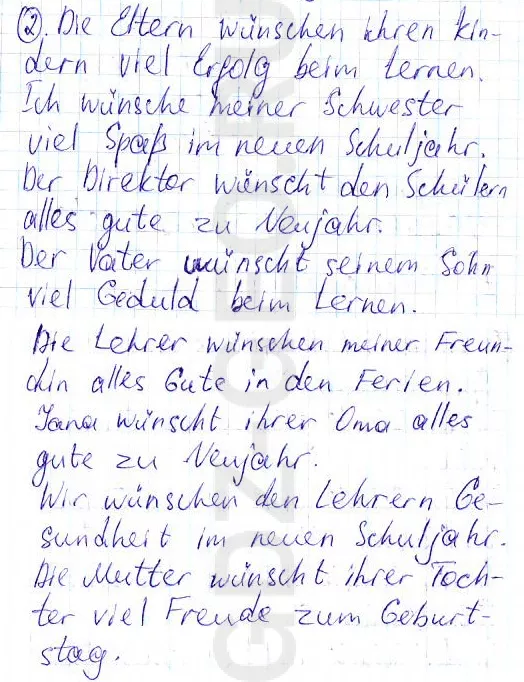 ②. Die Eltern wünschen ihren Kin-
dern viel Erfolg beim Lernen.
Ich wünsche meiner Schwester
viel Spaß im neuen Schuljahr.
Der Direktor wünscht den Schülern
alles gute zu Neujahr.
Der Vater wünscht seinem Sohn
viel Geduld beim Lernen.
Die Lehrer wünschen meiner Freun-
din alles Gute in den Ferien.
Jana wünscht ihrer Oma alles
gute zu Neujahr.
Wir wünschen den Lehrern Ge-
sundheit im neuen Schuljahr.
Die Mutter wünscht ihrer Toch-
ter viel Freude zum Geburt-
stag.
GDZ-GEO.RU